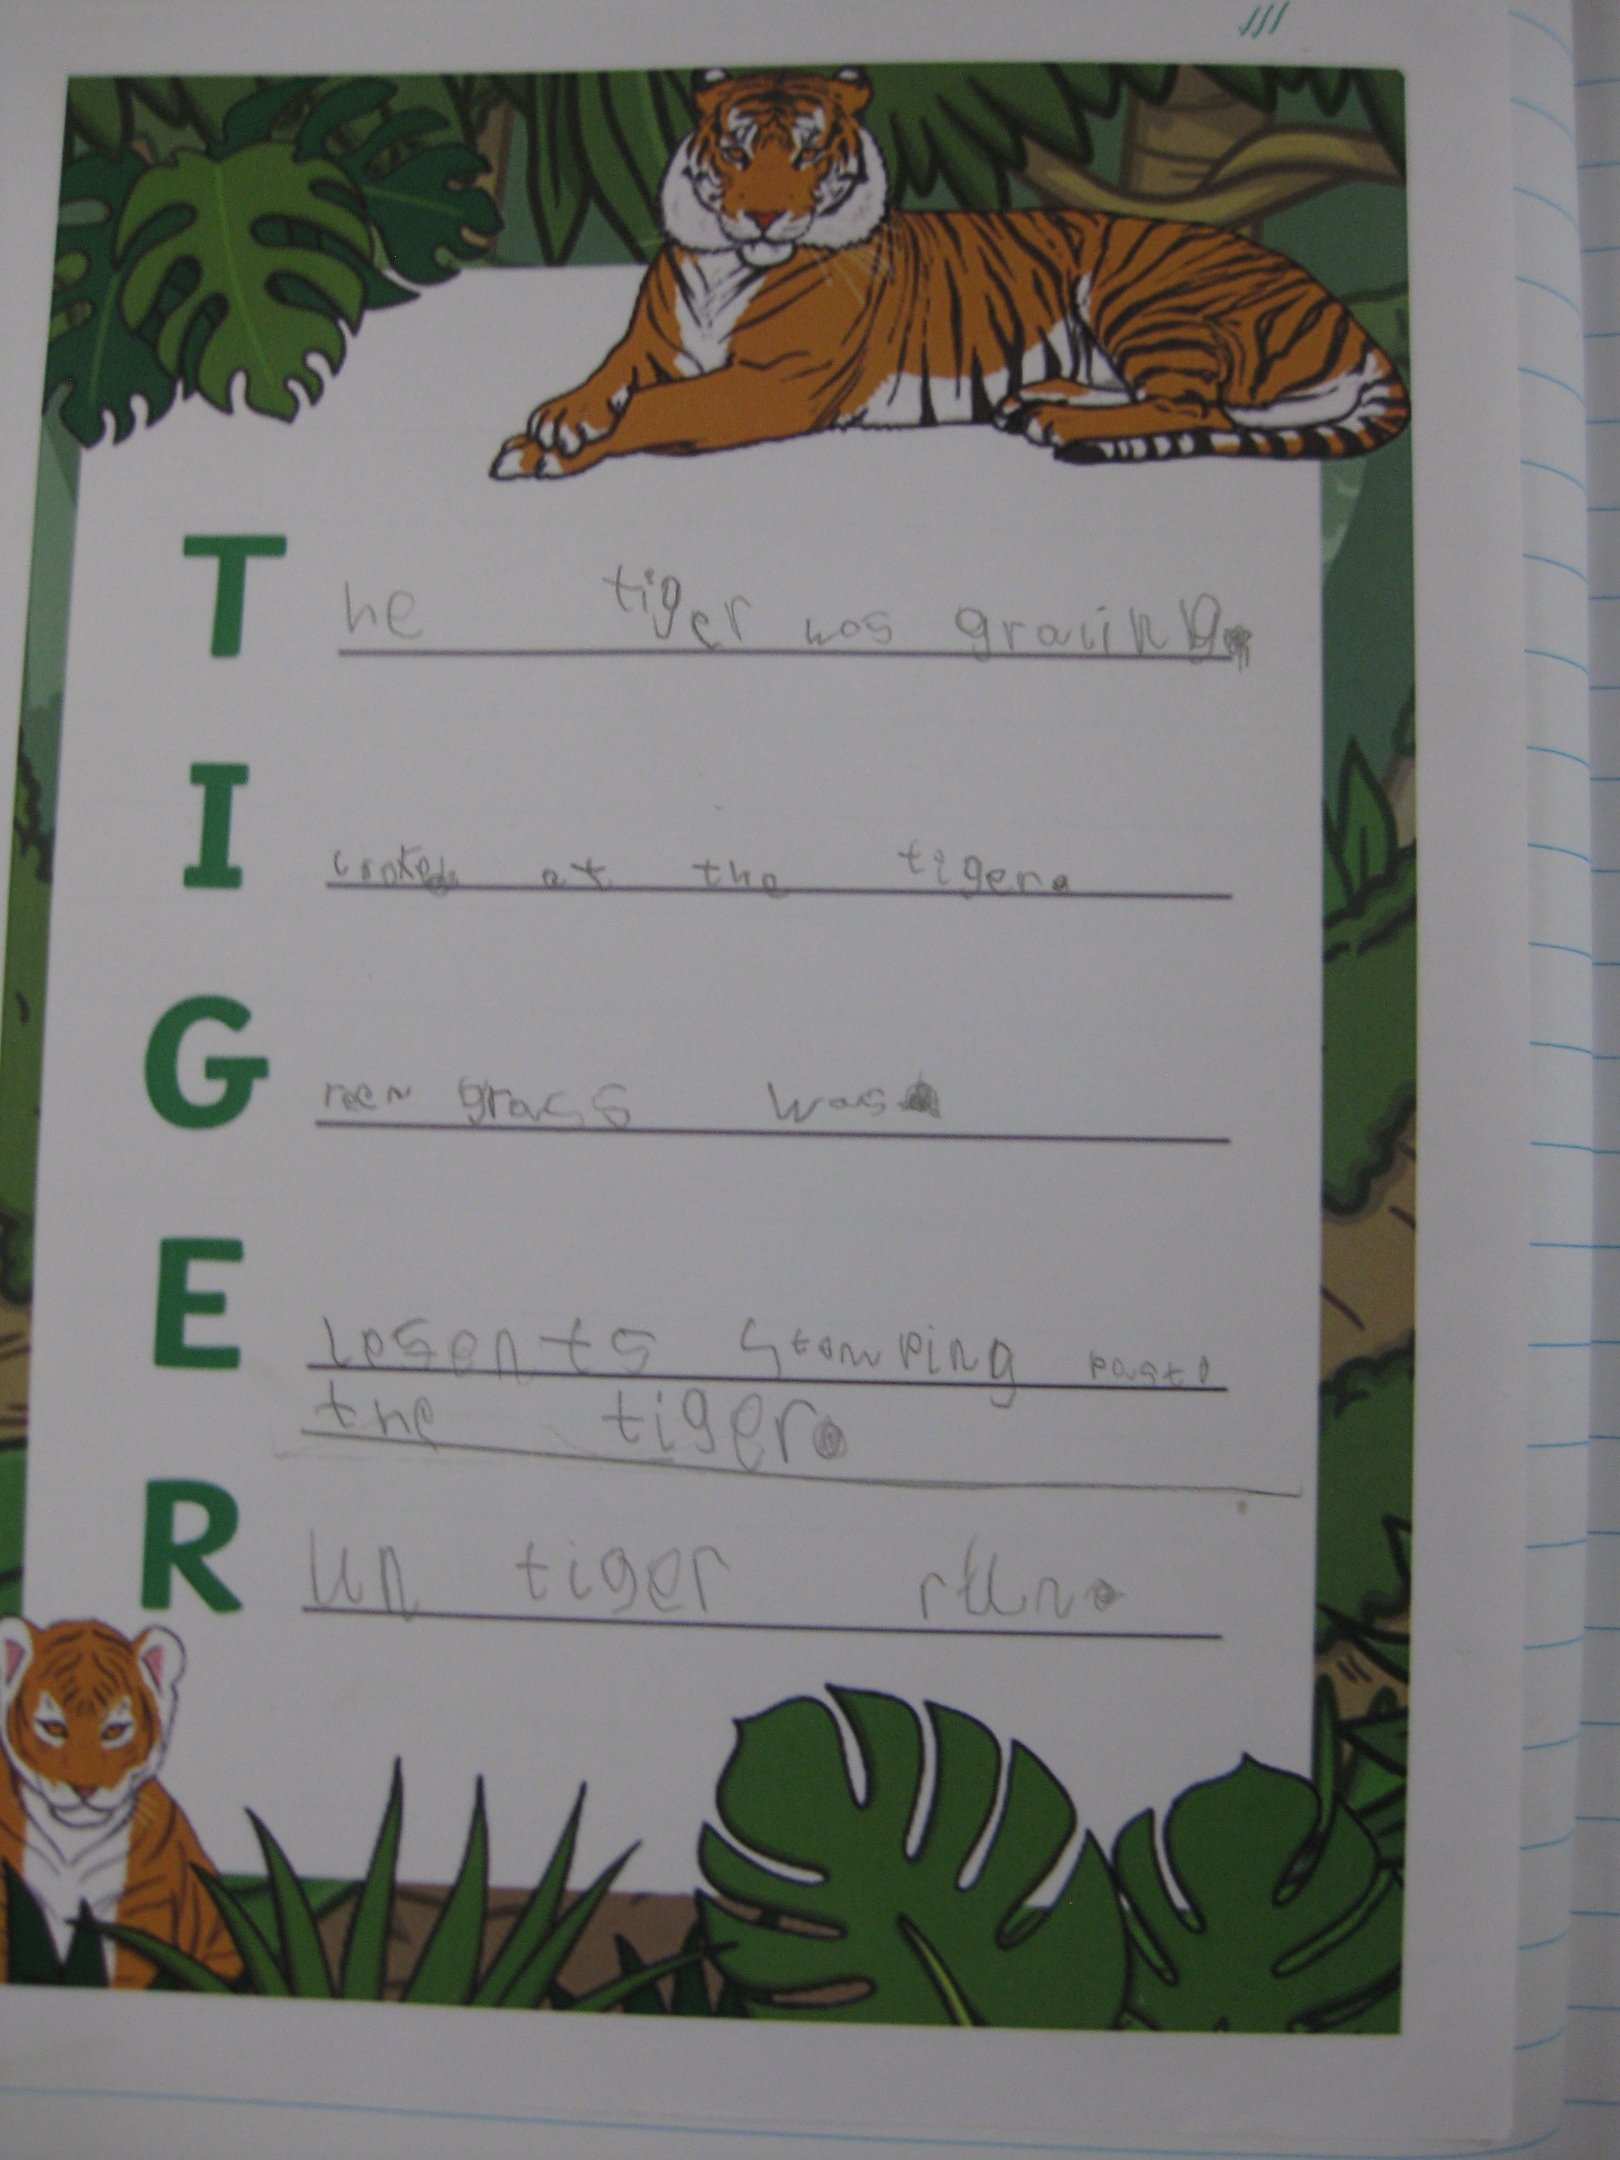 T he tiger was graiing.
I looked at the tiger.
G reen grass was
E lesents stomping past
the tiger.
R un tiger run.